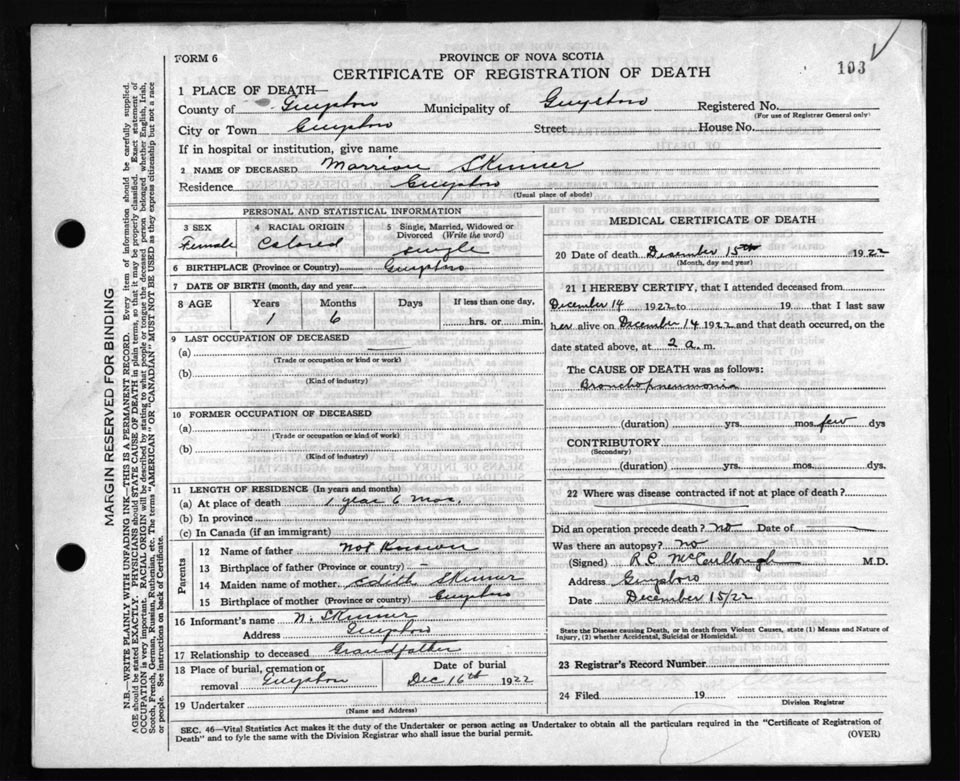 FORM 6
PROVINCE OF NOVA SCOTIA
CERTIFICATE OF REGISTRATION OF DEATH
103
1 PLACE OF DEATH—
County of Guysboro Municipality of Guysboro Registered No.
(For use of Registrar General only)
City or Town Guysboro Street House No.
If in hospital or institution, give name
2 NAME OF DECEASED Marrion Skinner
Residence Guysboro
(Usual place of abode)
PERSONAL AND STATISTICAL INFORMATION
3 SEX 4 RACIAL ORIGIN 5 Single, Married, Widowed or
Divorced (Write the word)
Female Colored single
6 BIRTHPLACE (Province or Country) Guysboro
7 DATE OF BIRTH (month, day and year)
8 AGE Years Months Days If less than one day,
1 6 hrs. or min.
9 LAST OCCUPATION OF DECEASED
(a)
(Trade or occupation or kind or work)
(b)
(Kind of industry)
10 FORMER OCCUPATION OF DECEASED
(a)
(Trade or occupation or kind of work)
(b)
(Kind of industry)
11 LENGTH OF RESIDENCE (In years and months)
(a) At place of death 1 year 6 mos.
(b) In province
(c) In Canada (if an immigrant)
Parents
12 Name of father not Known
13 Birthplace of father (Province or country) —
14 Maiden name of mother Edith Skinner
15 Birthplace of mother (Province or country) Guysboro
16 Informant's name N. Skinner
Address Guysboro
17 Relationship to deceased Grandfather
18 Place of burial, cremation or Date of burial
removal Guysboro Dec 16th 1922
19 Undertaker
(Name and Address)
MEDICAL CERTIFICATE OF DEATH
20 Date of death December 15th 1922
(Month, day and year)
21 I HEREBY CERTIFY, that I attended deceased from
December 14 1922 to 19 that I last saw
her alive on December 14 1922 and that death occurred, on the
date stated above, at 2 a. m.
The CAUSE OF DEATH was as follows:
Bronchopneumonia
(duration) yrs. mos. few dys
CONTRIBUTORY
(Secondary)
(duration) yrs. mos. dys.
22 Where was disease contracted if not at place of death?
Did an operation precede death? no Date of
Was there an autopsy? no
(Signed) R C McCullough M.D.
Address Guysboro
Date December 15/22
State the Disease causing Death, or in death from Violent Causes, state (1) Means and Nature of
Injury, (2) whether Accidental, Suicidal or Homicidal.
23 Registrar's Record Number
24 Filed 19
Division Registrar
SEC. 46—Vital Statistics Act makes it the duty of the Undertaker or person acting as Undertaker to obtain all the particulars required in the "Certificate of Registration of
Death" and to fyle the same with the Division Registrar who shall issue the burial permit.
(OVER)
MARGIN RESERVED FOR BINDING
N.B.—WRITE PLAINLY WITH UNFADING INK—THIS IS A PERMANENT RECORD. Every item of information should be carefully supplied.
AGE should be stated EXACTLY. PHYSICIANS should STATE CAUSE OF DEATH in plain terms, so that it may be properly classified. Exact statement of
OCCUPATION is very important. RACIAL ORIGIN will be described by stating to what people or tongue the deceased person belonged whether English, Irish,
Scotch, French, German, Russian, Ruthenian, etc. The terms "AMERICAN" OR "CANADIAN" MUST NOT BE USED as they express citizenship but not a race
or people. See instructions on back of Certificate.